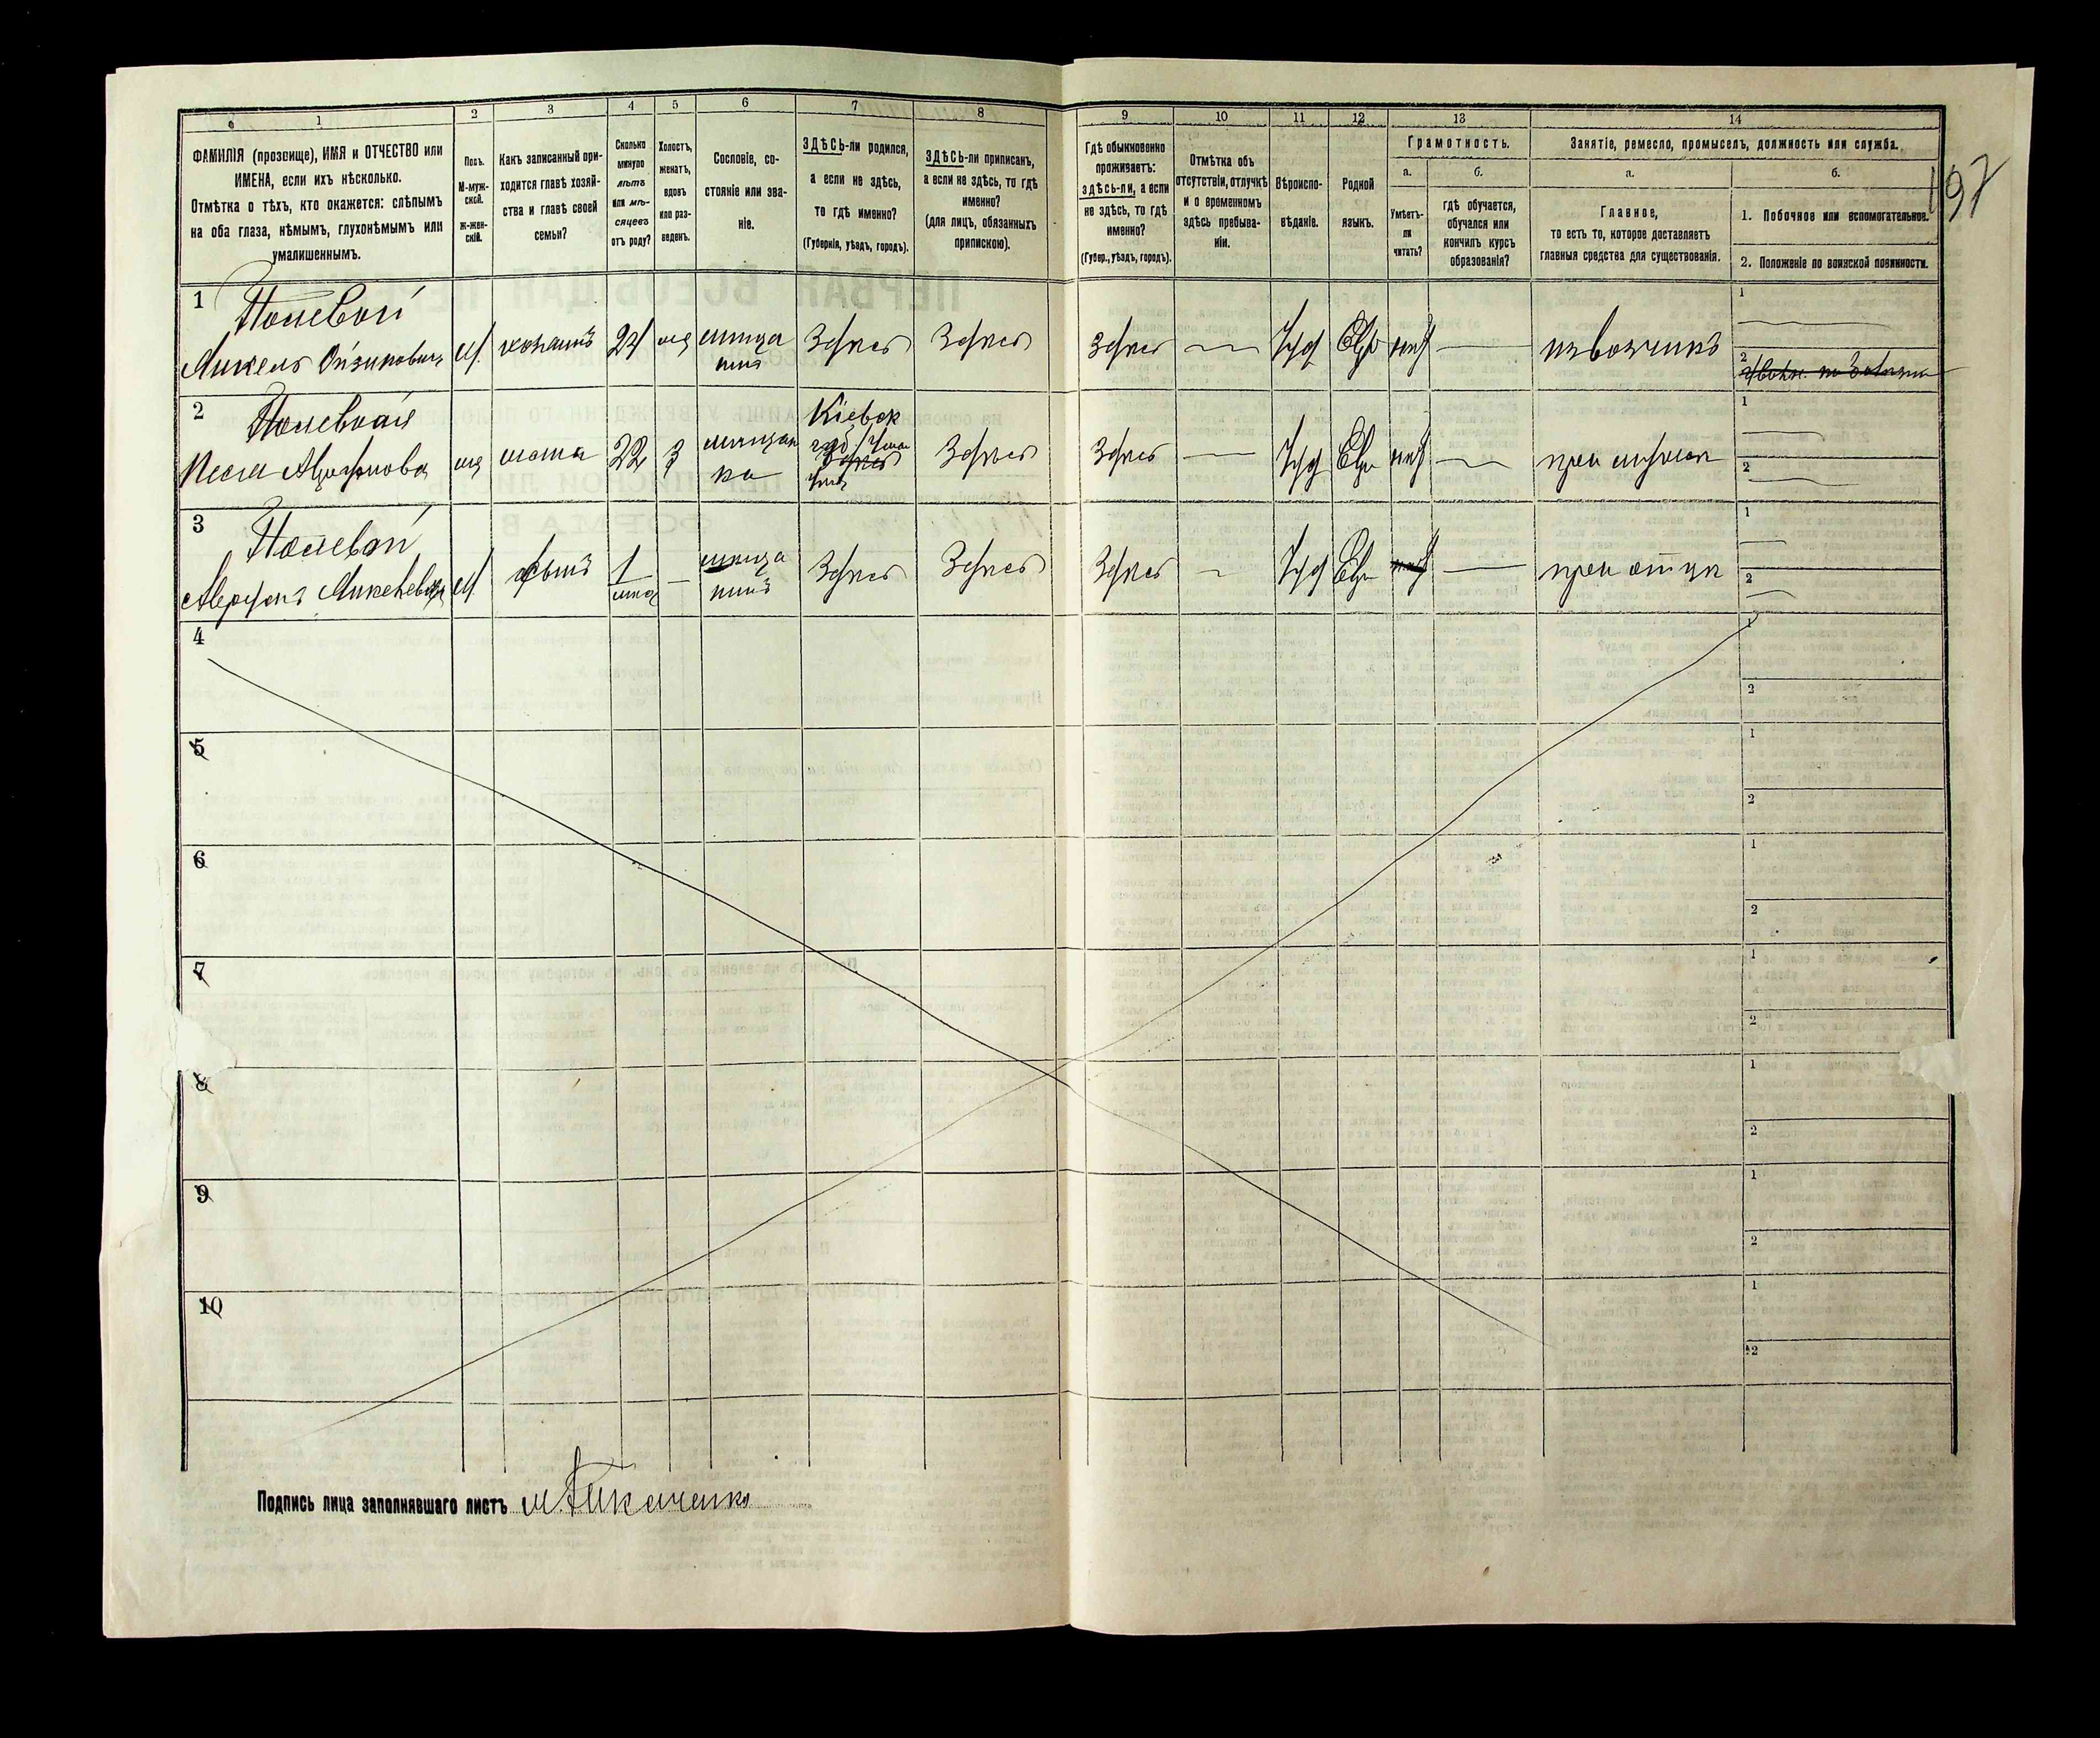 1 2 3 4 5 6 7 8 9 10 11 12 13 14
197
ФАМИЛІЯ (прозвище), ИМЯ и ОТЧЕСТВО или
ИМЕНА, если ихъ нѣсколько.
Отмѣтка о тѣхъ, кто окажется: слѣпымъ
на оба глаза, нѣмымъ, глухонѣмымъ или
умалишеннымъ.
Полъ.
М-муж-
ской.
Ж-жен-
скій.
Какъ записанный при-
ходится главѣ хозяй-
ства и главѣ своей
семьи?
Сколько
минуло
лѣтъ
или мѣ-
сяцевъ
отъ роду?
Холостъ,
женатъ,
вдовъ
или раз-
веденъ.
Сословіе, со-
стояніе или зва-
ніе.
ЗДѢСЬ-ли родился,
а если не здѣсь,
то гдѣ именно?
(Губернія, уѣздъ, городъ).
ЗДѢСЬ-ли приписанъ,
а если не здѣсь, то гдѣ
именно?
(для лицъ, обязанныхъ
припискою).
Гдѣ обыкновенно
проживаетъ:
здѣсь-ли, а если
не здѣсь, то гдѣ
именно?
(Губер., уѣздъ, городъ).
Отмѣтка объ
отсутствіи, отлучкѣ
и о временномъ
здѣсь пребыва-
ніи.
Вѣроиспо-
вѣданіе.
Родной
языкъ.
Грамотность.
а.
Умѣетъ-
ли
читать?
б.
гдѣ обучается,
обучался или
кончилъ курсъ
образованія?
Занятіе, ремесло, промыселъ, должность или служба.
а.
Главное,
то есть то, которое доставляетъ
главныя средства для существованія.
б.
1. Побочное или вспомогательное.
2. Положеніе по воинской повинности.
1 Полевой
М. 24 Здѣсь Здѣсь Здѣсь Іуд Евр нѣт извозчикъ
1
2
2 Полевая
жена 22 з мѣщан
ка
Кіевск
губ.
Здѣсь Здѣсь Іуд Евр нѣт при мужѣ
1
2
3 Полевой
М. сынъ 1
мѣща
нинъ
Здѣсь Здѣсь Здѣсь Іуд Евр при отцѣ
1
2
4 1
2
5 1
2
6 1
2
7 1
2
8 1
2
9 1
2
10 1
2
Подпись лица заполнявшаго листъ